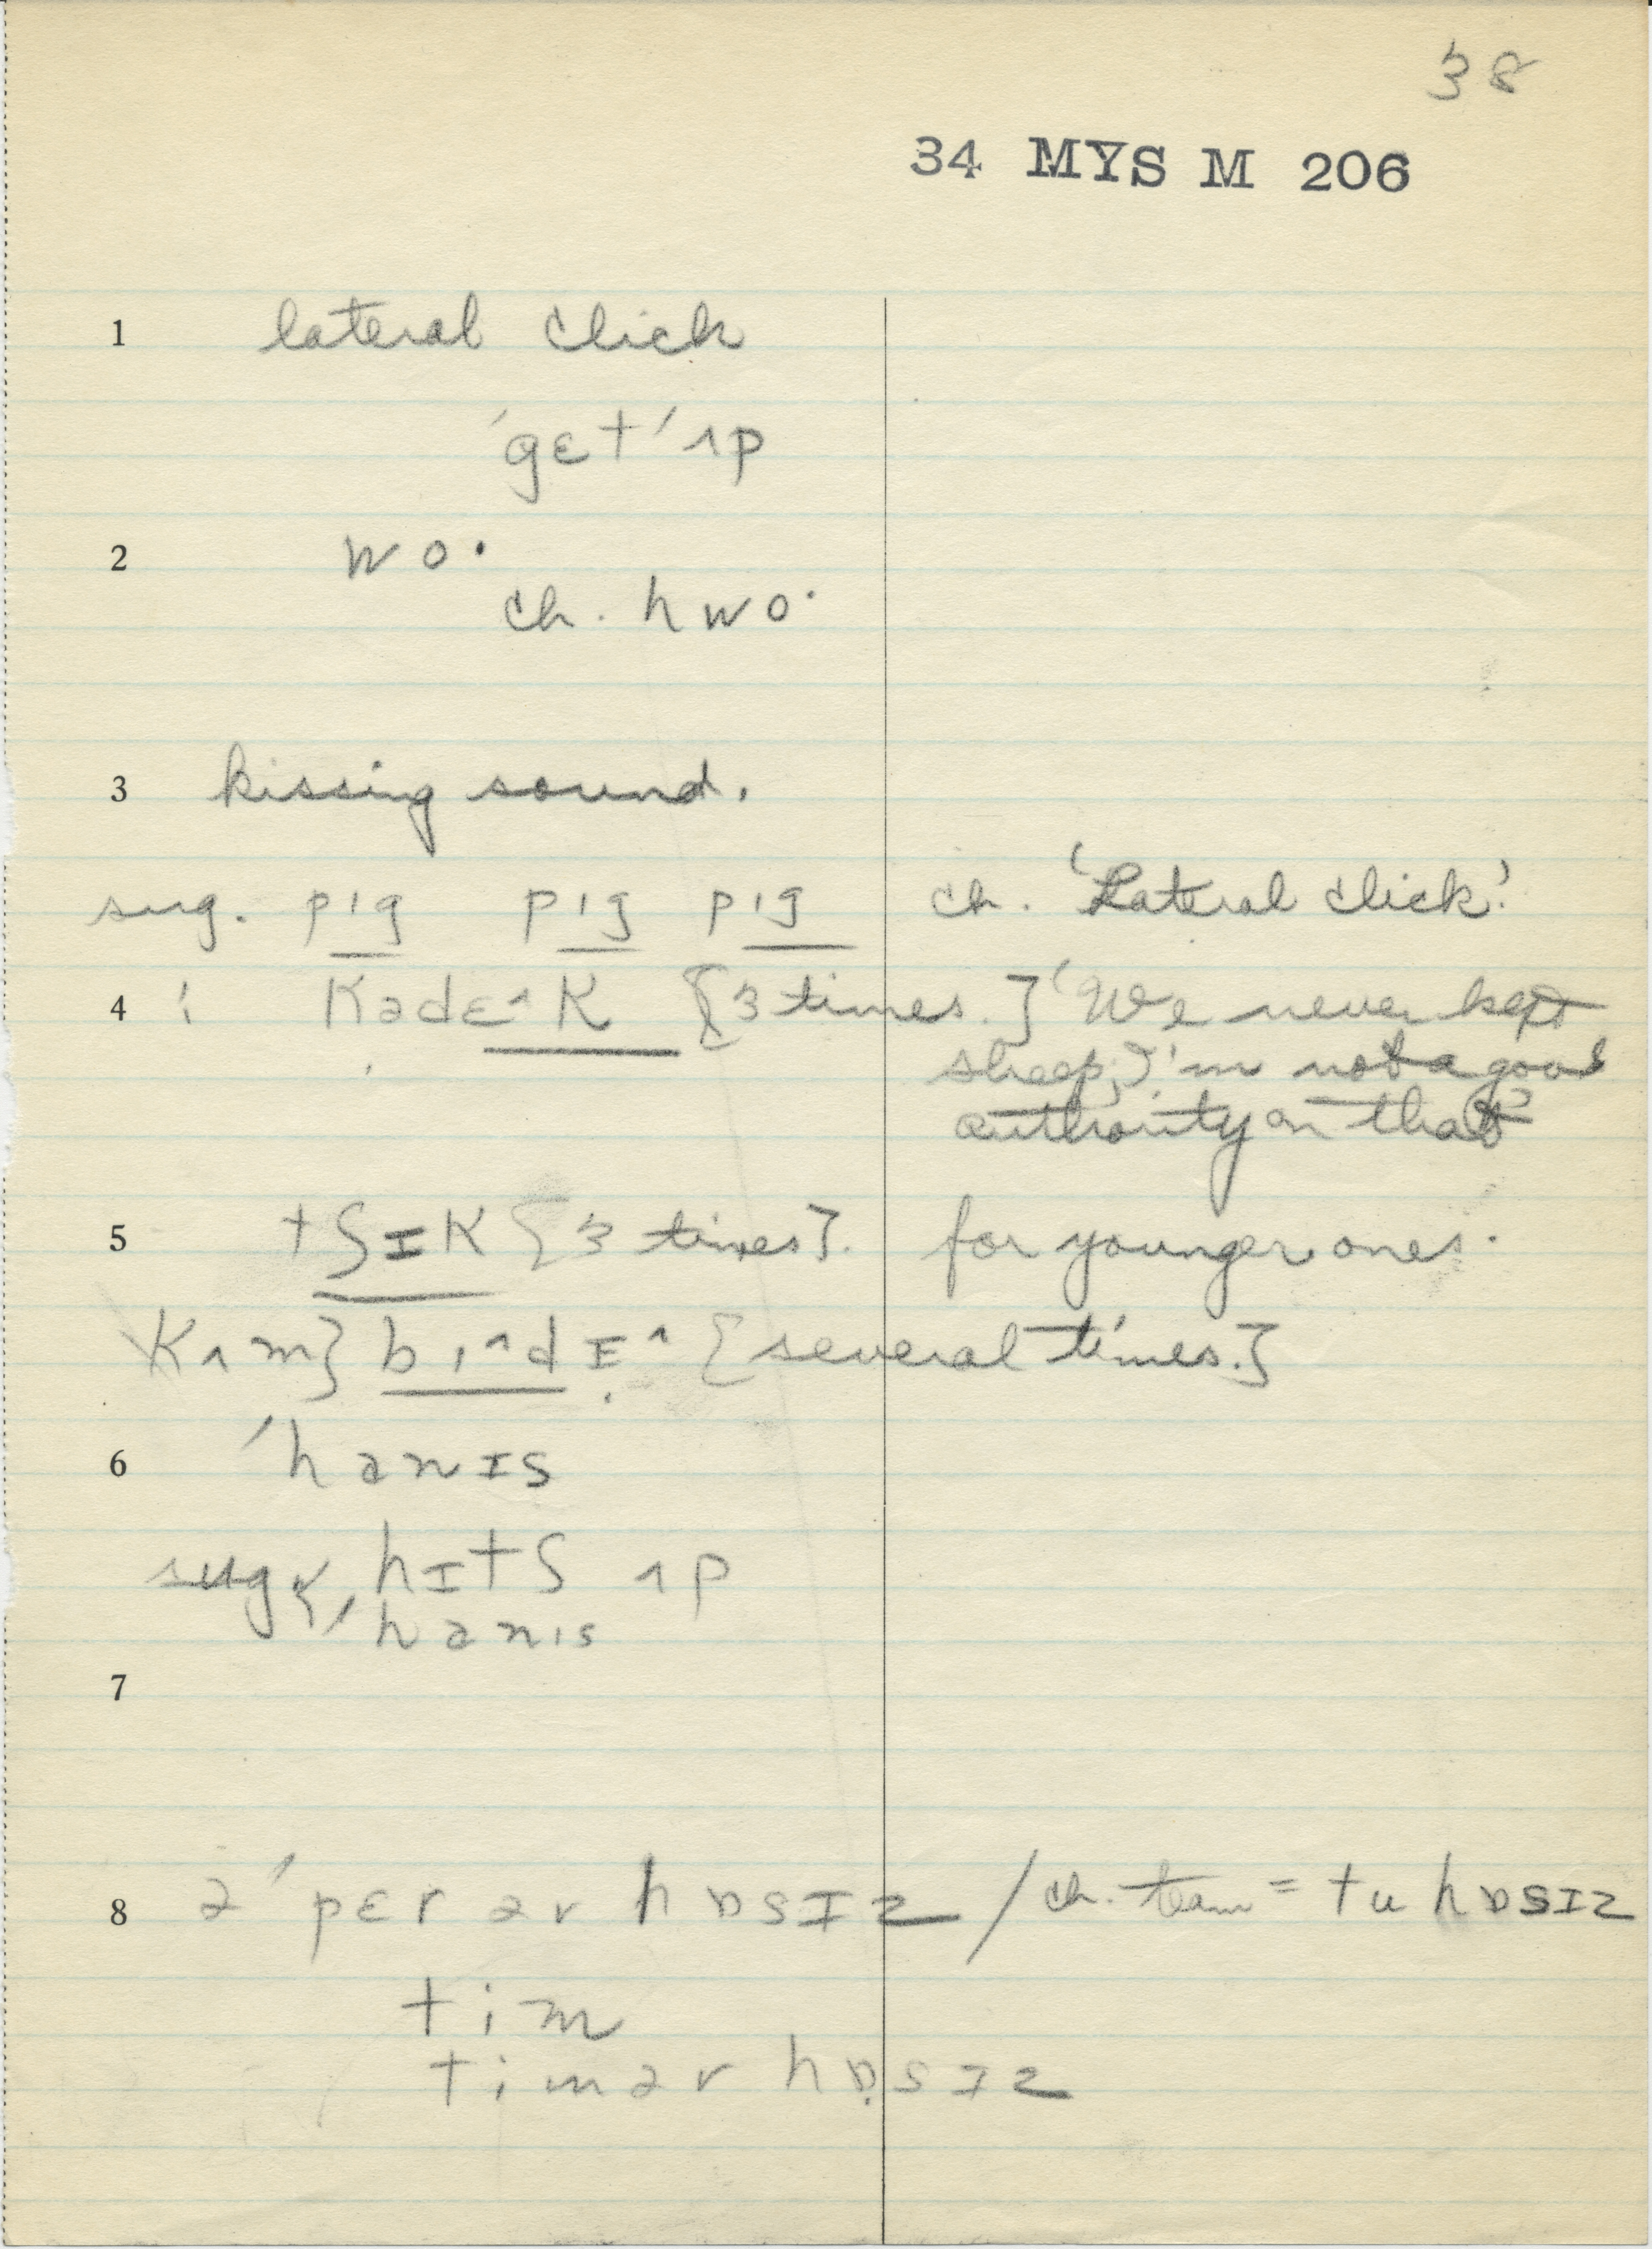 38
34 MYS M 206
1 lateral click
ˈgɛtˈʌp
2 wo·
ch. hwo·
3 kissing sound.
sug. pɪg pɪg pɪg ch. 'Lateral click.'
4 ⁝ Kədɛ^K [3 times.] 'We never kept
sheep, I'm not a good
authority on that'
5 tʃɪK [3 times]. for younger ones.
Kʌm} bɪ^dɪ^ [several times.]
6 ˈhanɪs
sug. hɪtʃ ʌp
ˈhanɪs
7
8 əˈpɛr ər hɒsɪz / ch. team = tu hɒsɪz
tim
timər hɒsɪz